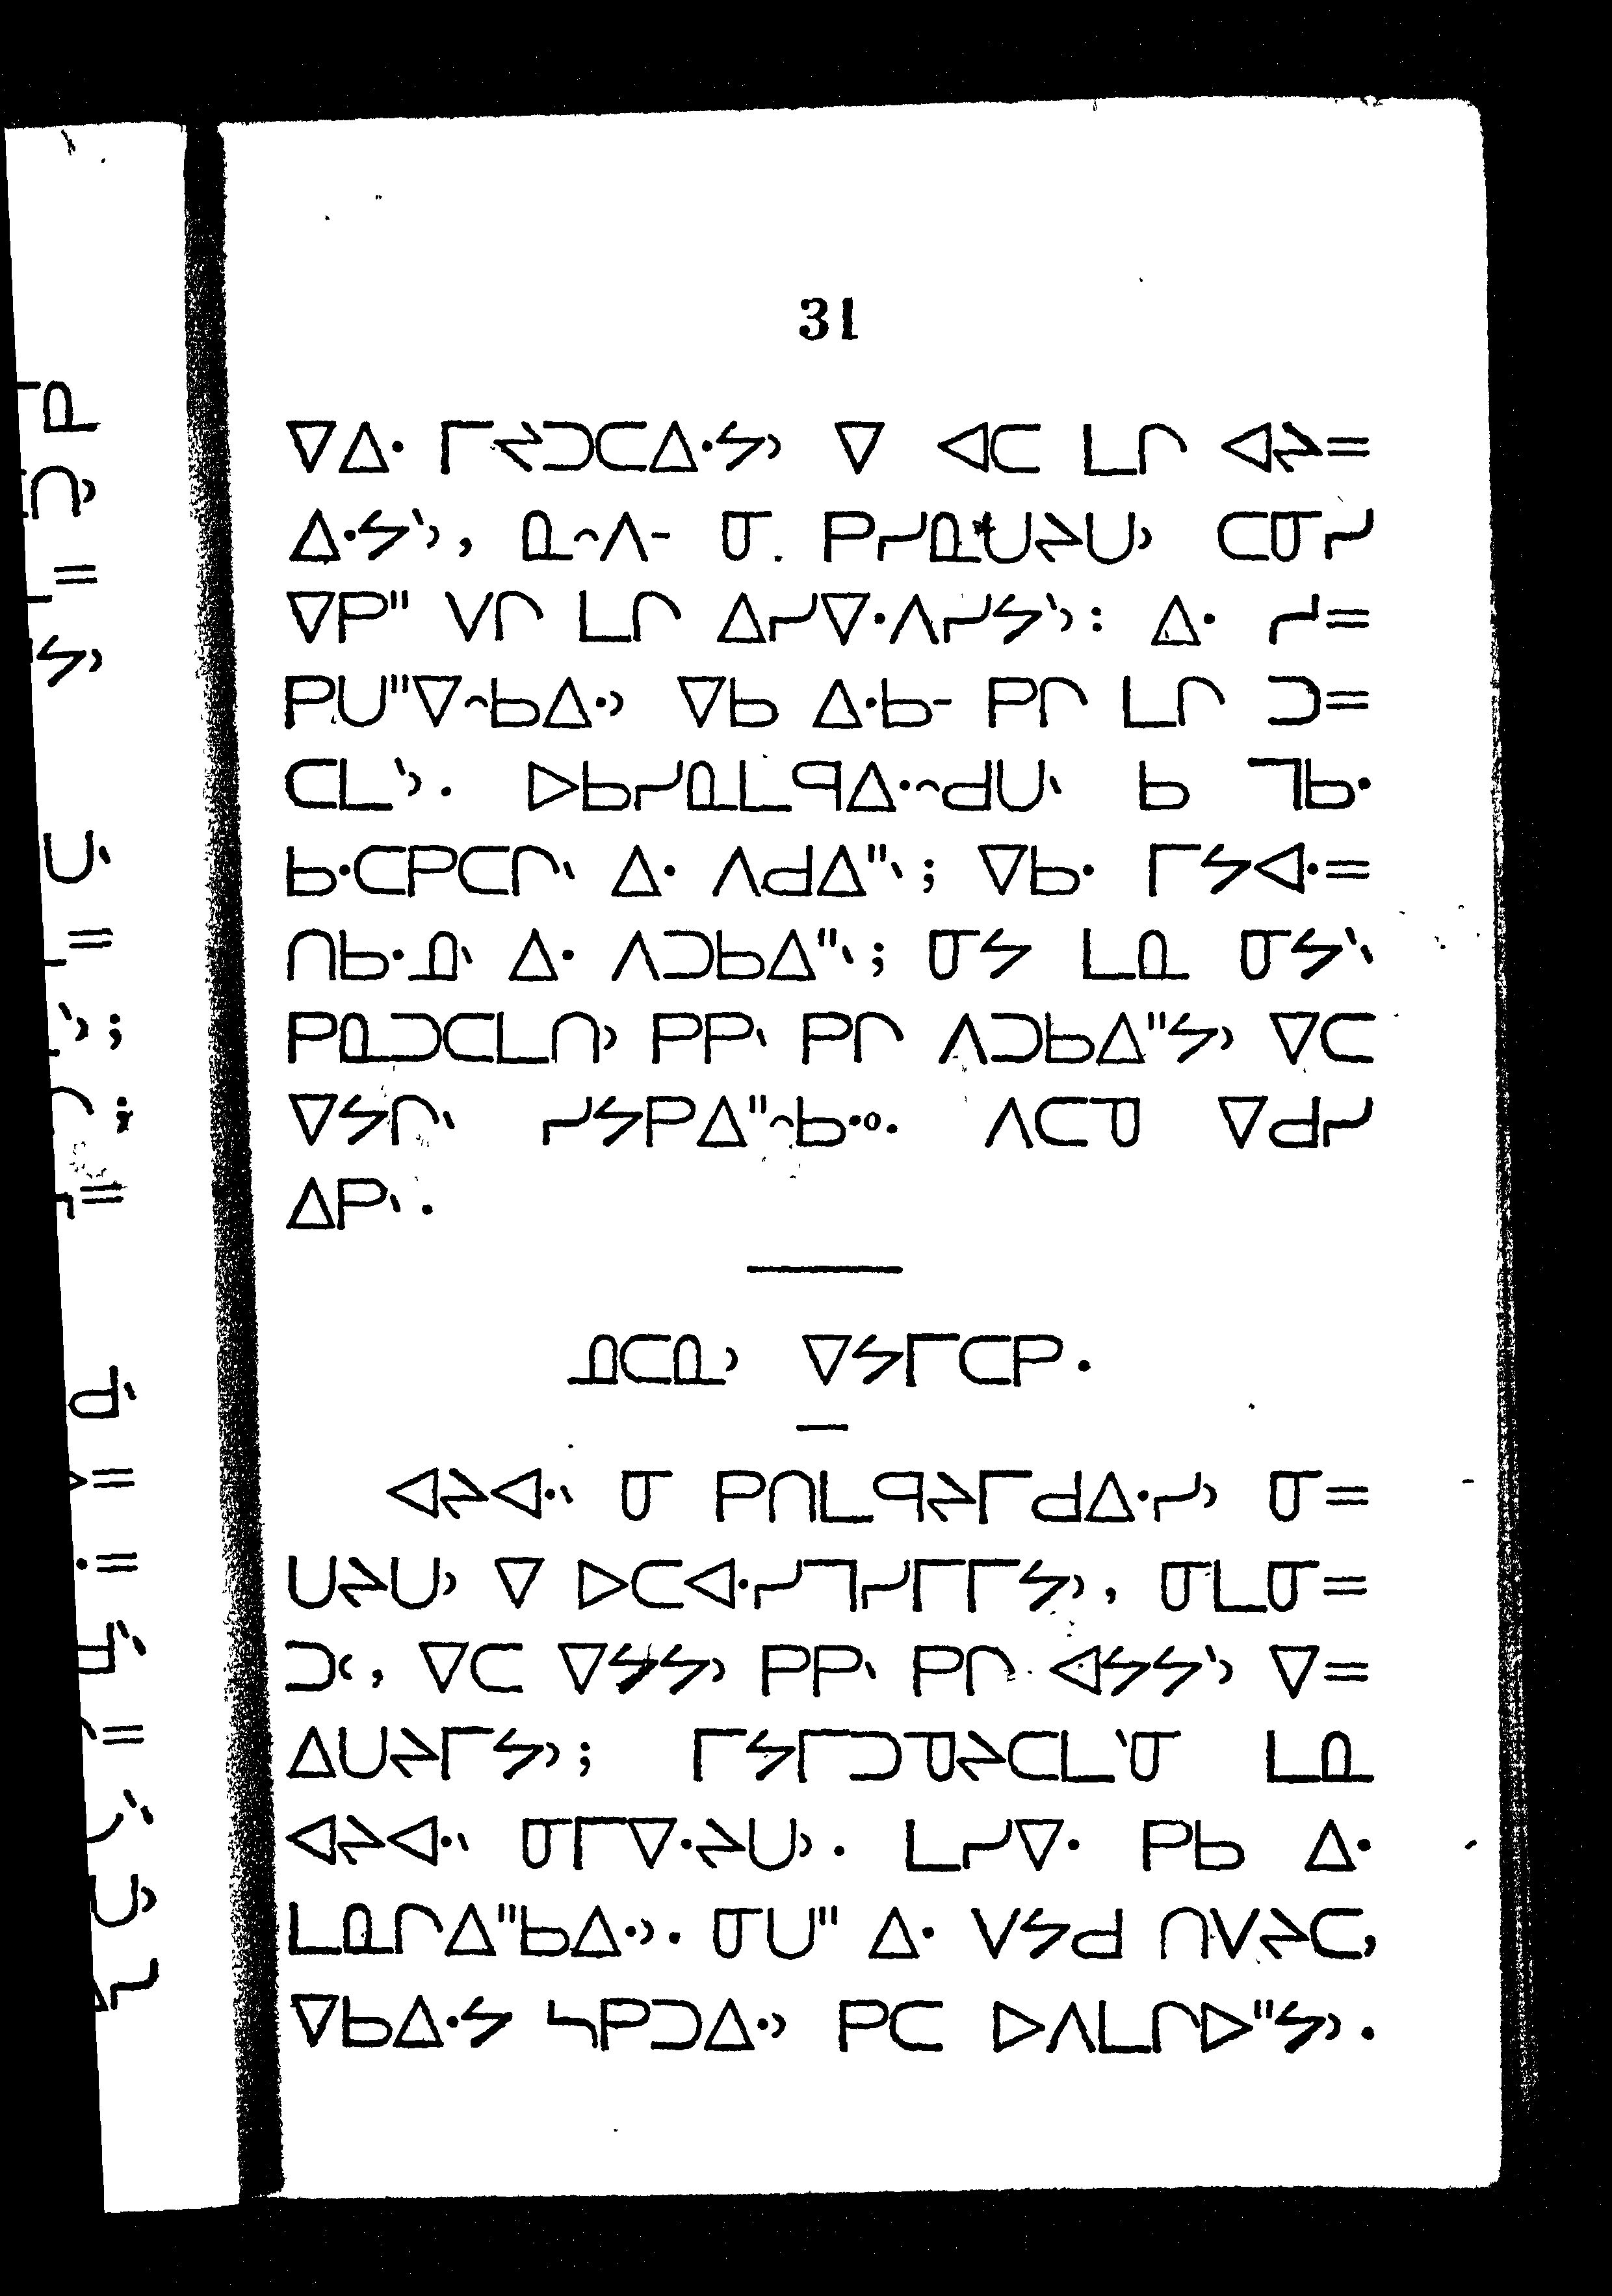 31
ᐁᐃᐧ ᒥᔪᑐᑕᐃᐧᔭᐣ ᐁ ᐊᑕ ᒪᒋ ᐊᔨ=
ᐃᐧᔭᐠᐣ, ᓇᐢᐱᐨ ᓂ ᑭᓯᓇᑌᔨᑌᐣ ᑕᓂᓯ
ᐁᑭᐦ ᐯᒋ ᒪᒋ ᐃᓯᐁᐧᐱᓯᔭᐠᐣ: ᐃᐧ ᓯ=
ᑭᑌᐦᐁᐢᑲᐃᐧᐣ ᐁᑲ ᐃᐧᑲᐨ ᑭᒋ ᒪᒋ ᑐ=
ᑕᒪᐠᐣ. ᐅᑲᓯᓇᒪᑫᐃᐧᐢᑯᑌᐠ ᑲ ᒣᑲᐧ
ᑲᐧᑕᑭᑕᒋᐠ ᐃᐧ ᐱᑯᐃᐦᐠ; ᐁᑲᐧ ᒥᔭᐊᐧ=
ᑎᑲᐧᓄᐠ ᐃᐧ ᐱᑐᑲᐃᐦᐠ; ᓂᔭ ᒪᓇ ᓂᔭᐠᐠ
ᑭᓇᑐᑕᒪᑎᐣ ᑭᑭᐠ ᑭᒋ ᐱᑐᑲᐃᐦᔭᐣ ᐁᑕ
ᐁᔭᒋᐠ ᓯᔭᑭᐃᐦᐢᑲᐧᐤ. ᐱᑕᓀ ᐁᑯᓯ
ᐃᑭᐠ.
ᓄᑕᓇᐣ ᐁᔭᒥᑕᑭ.
ᐊᔨᐊᐧᐠ ᓂ ᑭᑎᒪᑫᔨᒥᑯᐃᐧᓯᐣ ᓂ=
ᑌᔨᑌᐣ ᐁ ᐅᑕᐊᐧᓯᒣᓯᒥᒥᔭᐣ, ᓂᒪᓂ=
ᑐᒼ, ᐁᑕ ᐁᔭᔭᐣ ᑭᑭᐠ ᑭᒋ ᐊᔭᔭᐠᐣ ᐁ=
ᐃᑌᔨᒥᔭᐣ; ᒥᔭᒥᑐᓀᔨᑕᒪᐠᓂ ᒪᓇ
ᐊᔨᐊᐧᐠ ᓂᒥᐁᐧᔨᑌᐣ. ᒪᓯᐁᐧ ᑭᑲ ᐃᐧ
ᒪᓇᒋᐃᐦᑲᐃᐧᐣ. ᓂᑌᐦ ᐃᐧ ᐯᔭᑯ ᑎᐯᔨᑕ,
ᐁᑲᐃᐧᔭ ᓴᑭᑐᐃᐧᐣ ᑭᑕ ᐅᐱᒪᒋᐅᐦᔭᐣ.